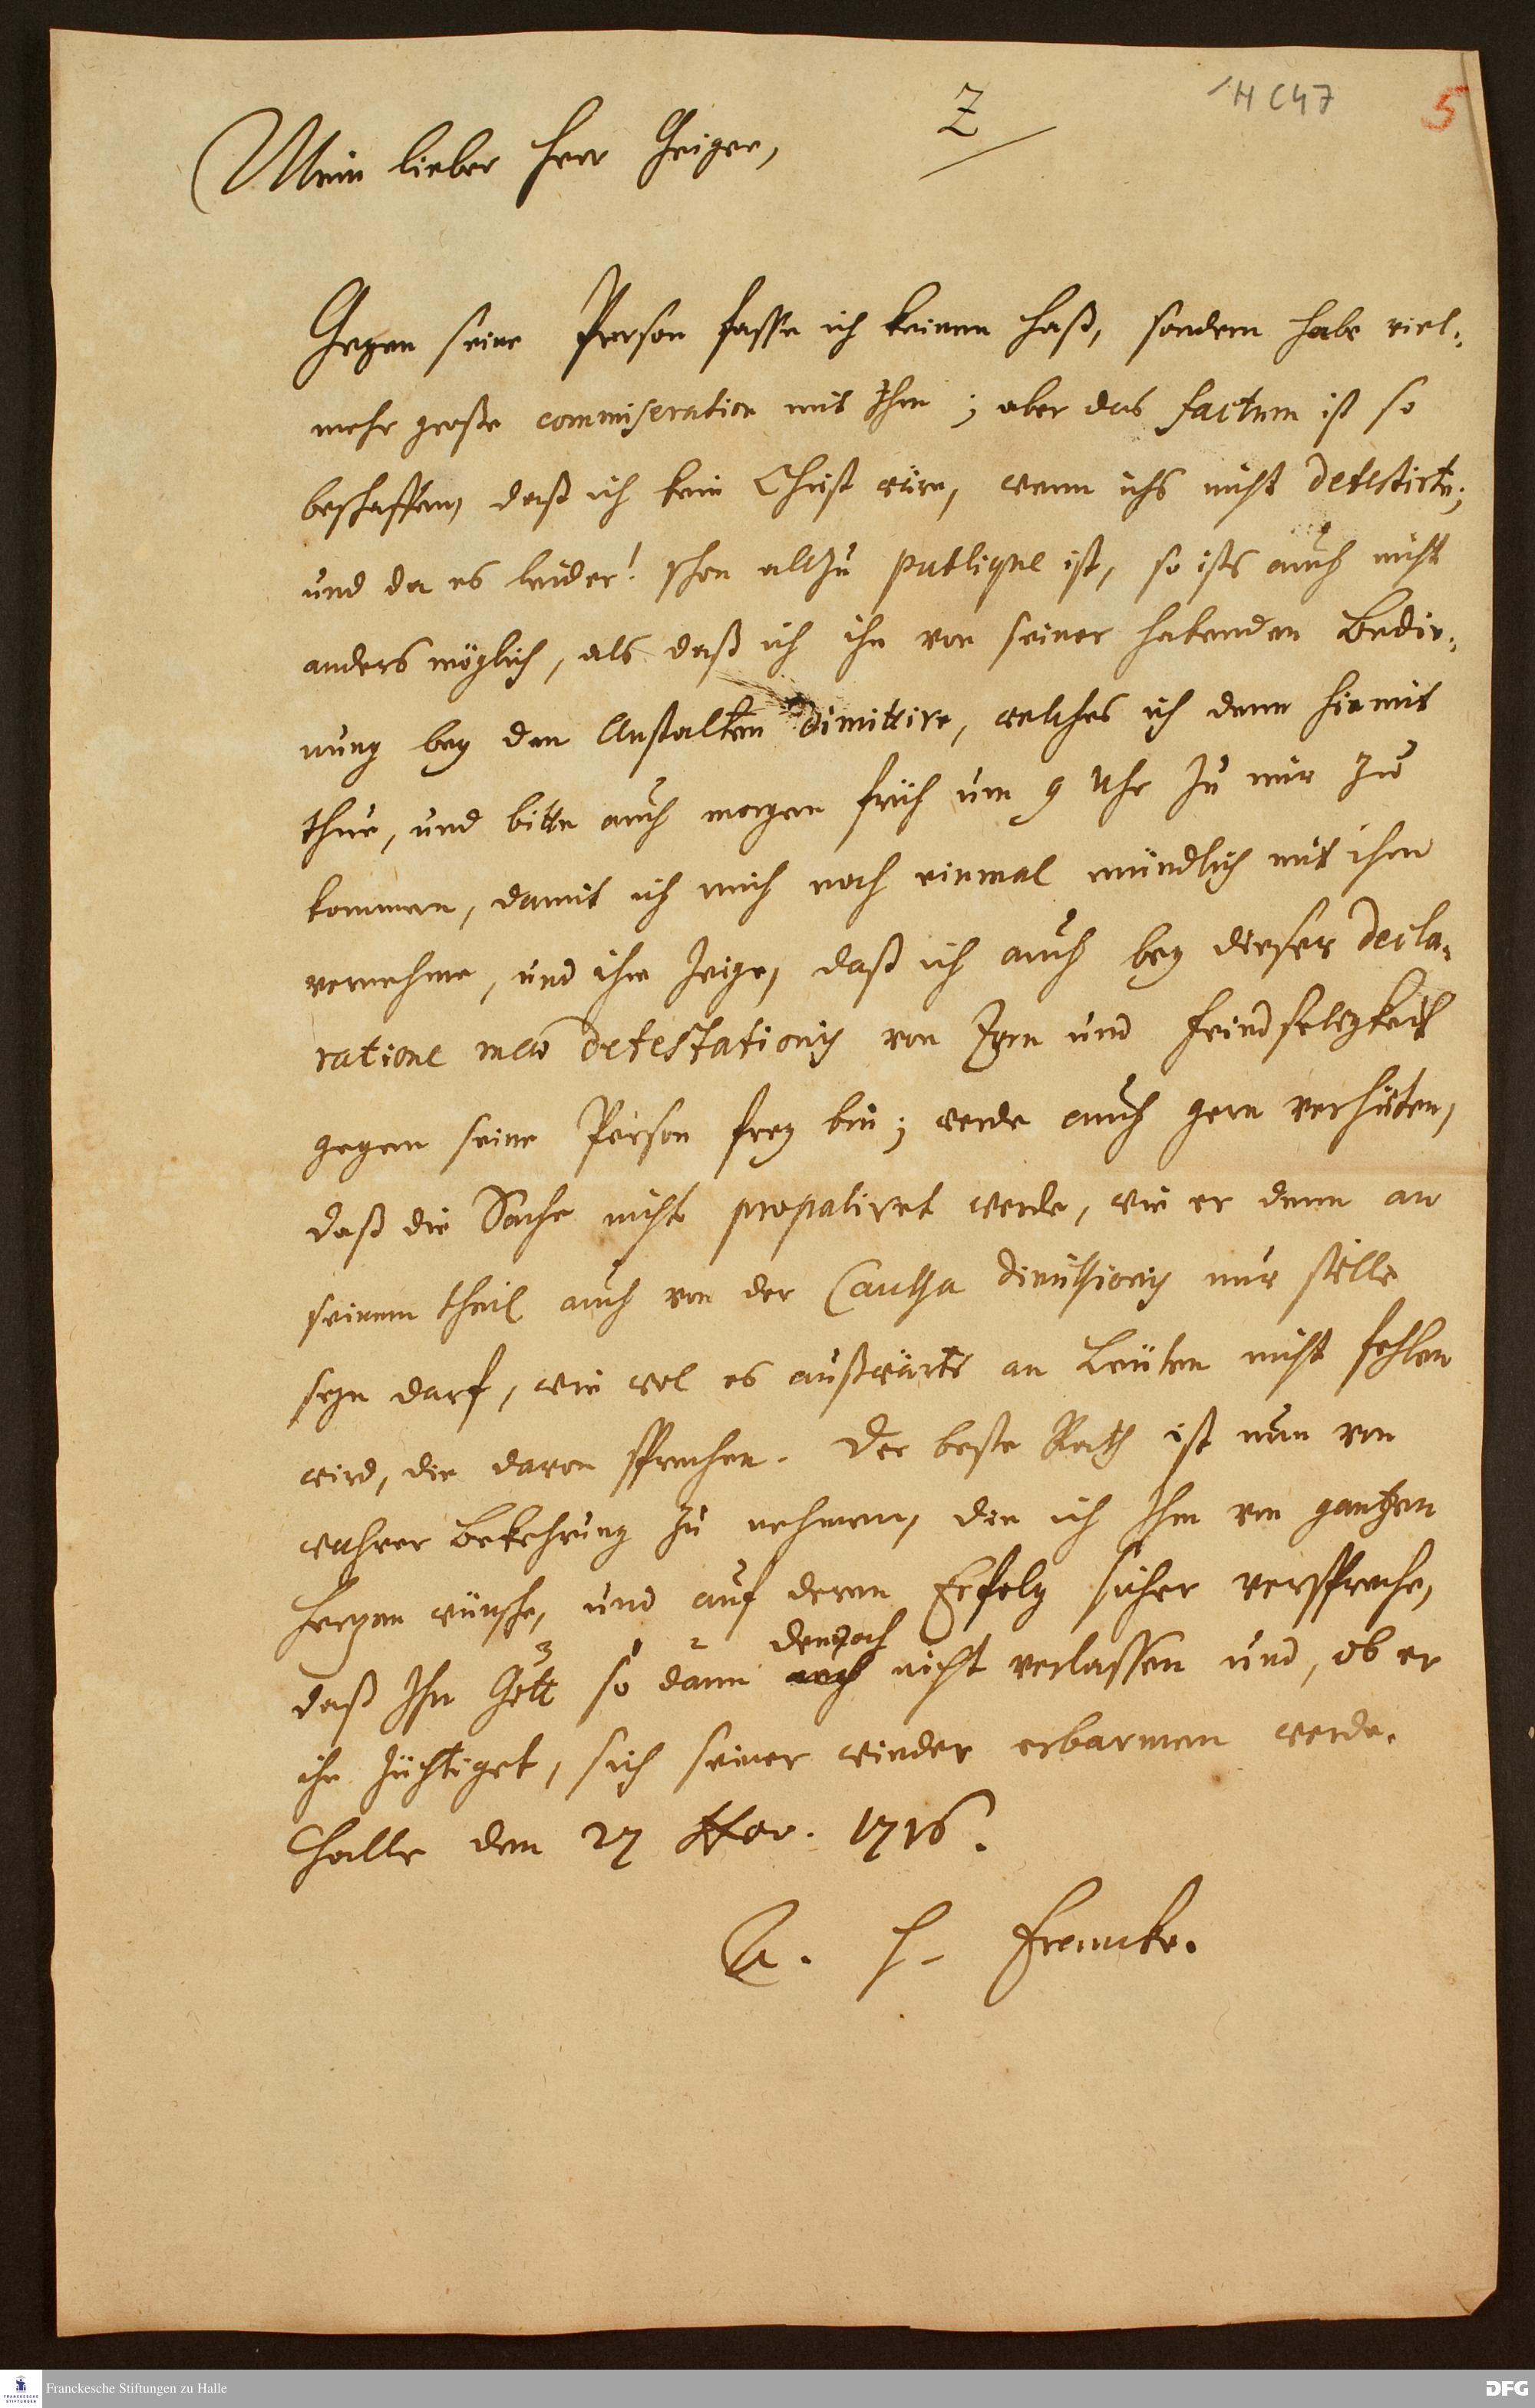 H C47
5
Z
Mein lieber Herr Geiger,
Gegen seine Person fasse ich keinen Haß, sondern habe viel-
mehr große commiseration mit Ihm; aber das factum ist so
beschaffen, daß ich kein Christ wäre, wenn ichs nicht detestirte;
und da es leider! schon allzu publique ist, so ists auch nicht
anders möglich, als daß ich ihn von seiner habenden Bedie-
nung bey den Anstalten dimittire, welches ich denn hiemit
thue, und bitte auch morgen früh um 9 Uhr zu mir zu
kommen, damit ich mich noch einmal mündlich mit ihm
vernehme, und ihm zeige, daß ich auch bey dieser decla-
ratione meae detestationis von Zorn und Feindseligkeit
gegen seine Person frey bin; werde auch gern verhüten,
daß die Sache nicht propaliret werde, wie er denn an
seinem theil auch von der Caussa dimissionis nur stille
seyn darf, wie wol es außwärts an Leuten nicht fehlen
wird, die davon sprechen. Der beste Rath ist nun von
wahrer Bekehrung zu nehmen, die ich Ihm von gantzem
Hertzen wünsche, und auf deren Erfolg sicher verspreche,
dennoch
daß Ihn Gott so dann auch nicht verlassen und, ob er
ihn züchtiget, sich seiner wieder erbarmen werde.
Halle den 27 Nov. 1716.
A. H. Francke.
Franckesche Stiftungen zu Halle
DFG